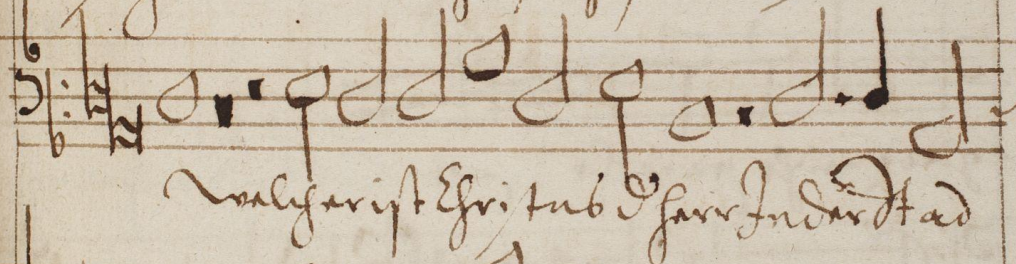 welcher ist Christus d' herr In der Stad